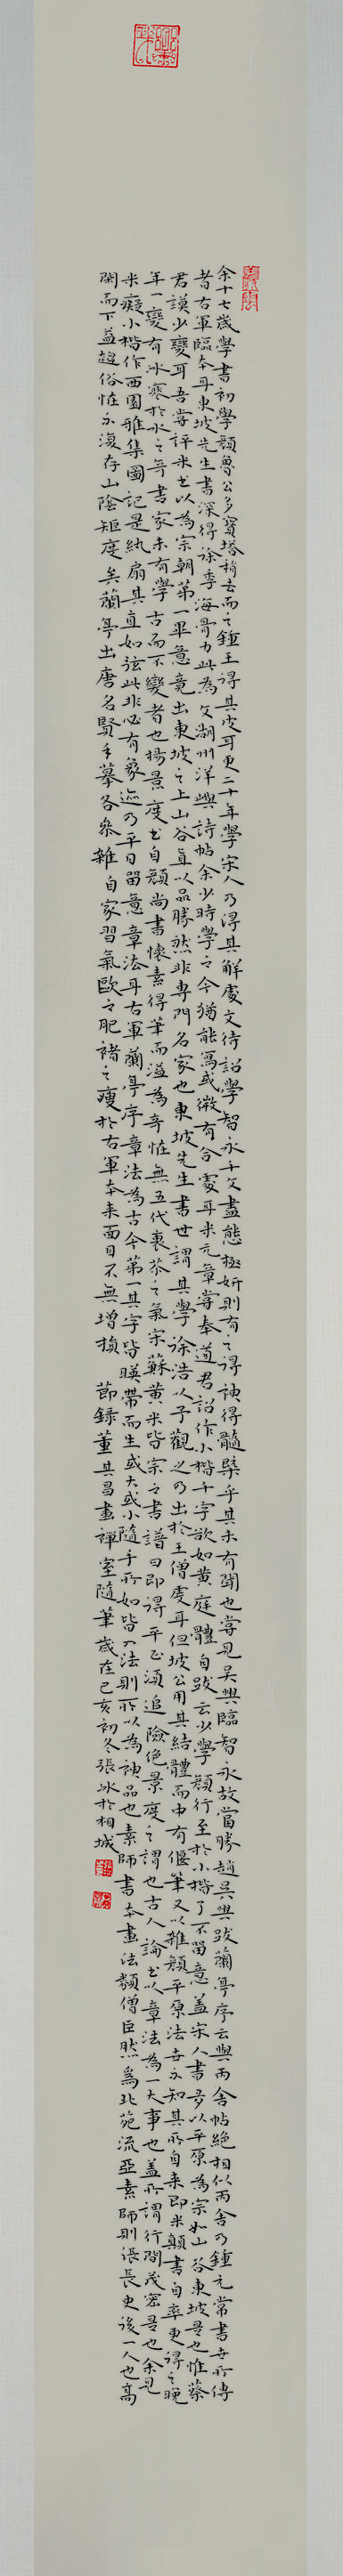 余十七歲學書初學顏魯公多寶塔稍去而之鍾王得其皮耳更二十年學宋人乃得其解處文待詔學智永千文盡態極妍則有之得神得髓槩乎其未有聞也嘗見吳興臨智永故當勝趙吳興跋蘭亭序云與丙舍帖絕相似丙舍乃鍾元常書世所傳
者右軍臨本耳東坡先生書深得徐季海骨力此為文湖州洋嶼詩帖余少時學之今猶能寫或微有合處耳米元章嘗奉道君詔作小楷千字欲如黃庭體自跋云少學顏行至於小楷了不留意蓋宋人書多以平原為宗如山谷東坡是也惟蔡
君謨少變耳吾嘗評米書以為宗朝第一畢意竟出東坡之上山谷直以品勝然非專門名家也東坡先生書世謂其學徐浩以予觀之乃出於王僧虔耳但坡公用其結體而中有偃筆又以雜顏平原法世亦知其所自来即米顛書自率更得之晚
年一變有冰寒於水之奇書家未有學古而不變者也楊景度書自顏尚書懷素得筆而溢為奇怪無五代衰苶之氣宋蘇黄米皆宗之書譜曰即得平正須追險絕景度之謂也古人論書以章法為一大事也蓋所謂行間茂密是也余見
米癡小楷作西園雅集圖記是紈扇其直如弦此非必有象迹乃平日留意章法耳右軍蘭亭序章法為古今第一其字皆暎帶而生或大或小隨手所如皆入法則所以為神品也素師書本畫法類僧巨然為北苑流亞素師則張長史後一人也高
閑而下益趨俗怪不復存山陰矩度矣蘭亭出唐名賢手摹各參雜自家習氣歐之肥褚之瘦於右軍本来面目不無增損 節録董其昌畫禪室隨筆歲在己亥初冬張冰於相城